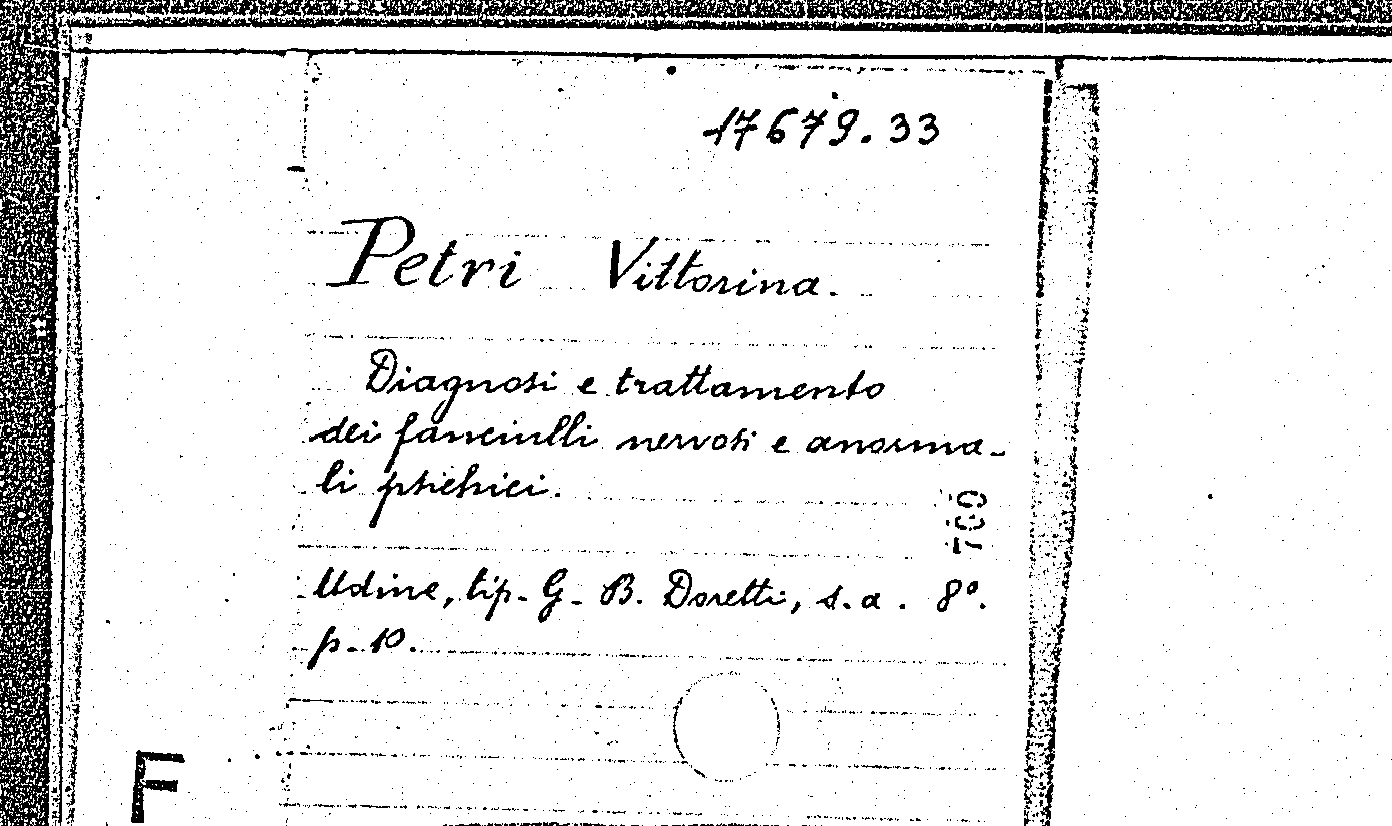 17679.33
Petri Vittorina.
Diagnosi e trattamento
dei fanciulli nervosi e anorma-
li psichici.
700
Udine, tip. G. B. Doretti, s.a. 8º.
p. 10.
F